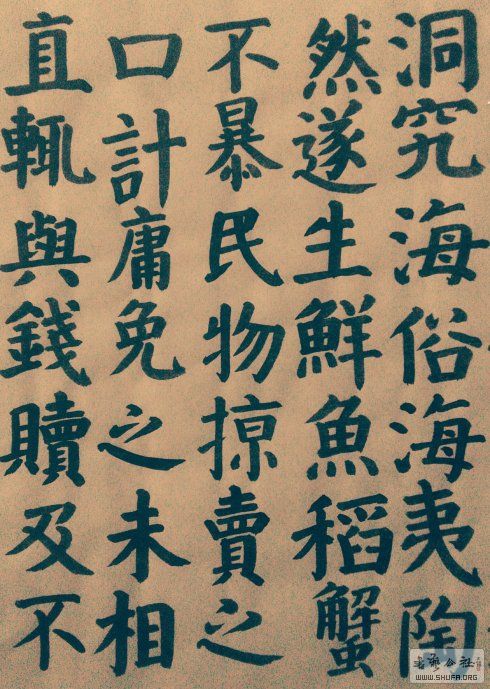 洞究海俗海夷陶
然遂生鮮魚稻蟹
不暴民物掠賣之
口計庸免之未相
直輒與錢贖及不
書藝公社
WWW.SHUFA.ORG